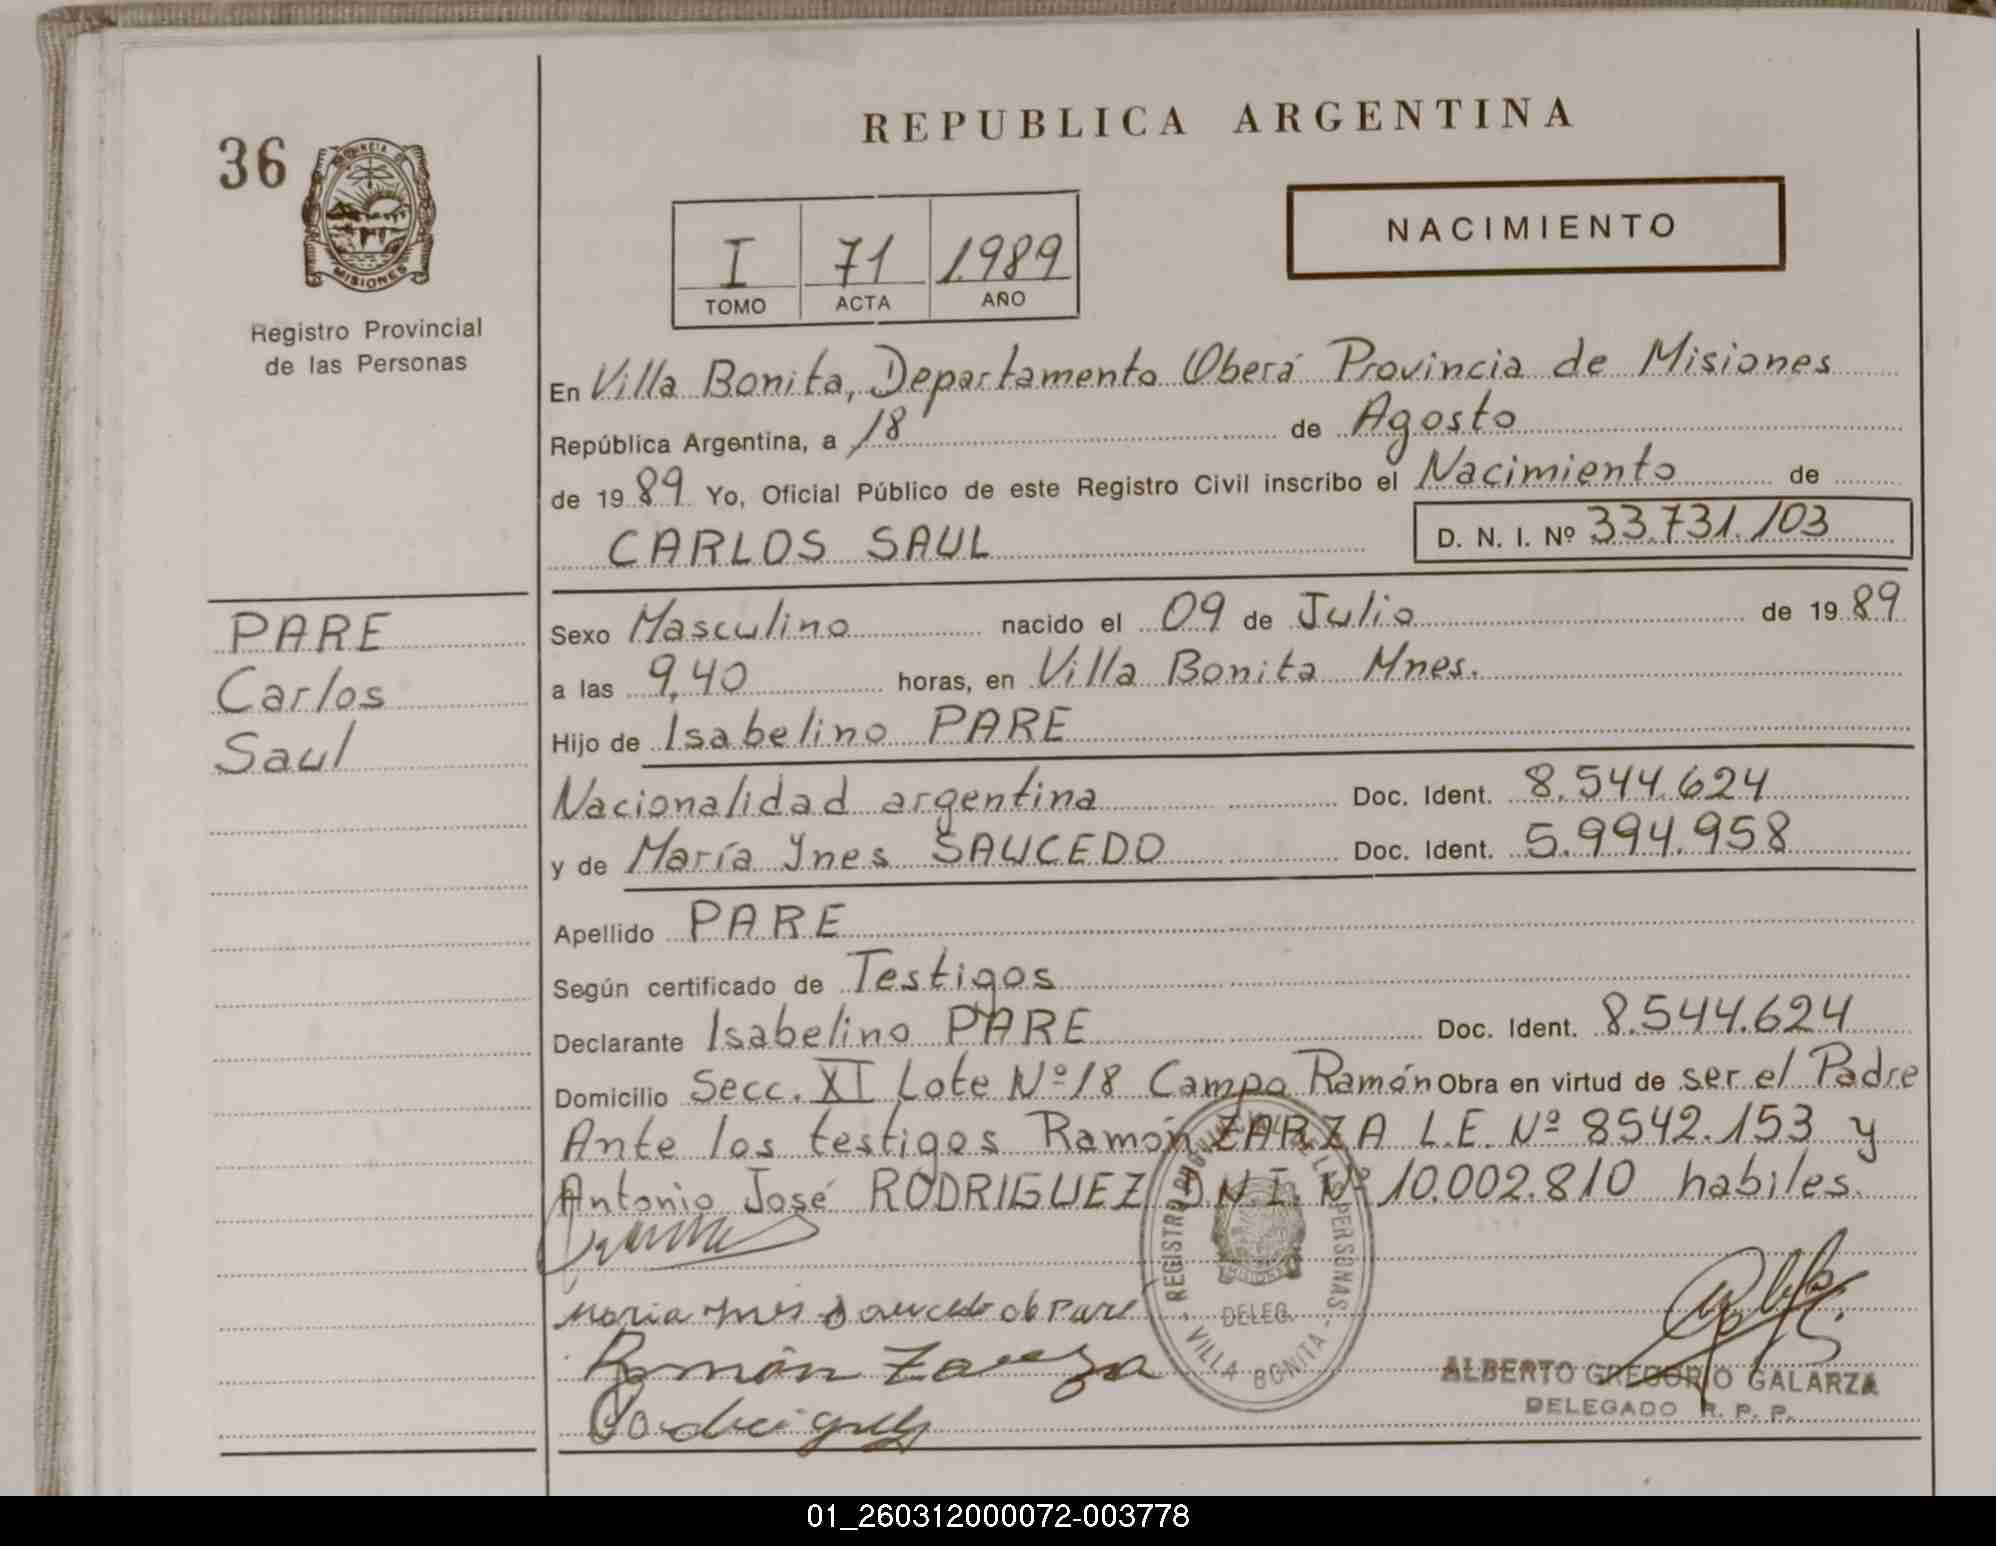 REPUBLICA ARGENTINA
36
PROVINCIA DE
MISIONES
Registro Provincial
de las Personas
NACIMIENTO
I 71 1989
TOMO ACTA AÑO
En Villa Bonita, Departamento Oberá Provincia de Misiones
República Argentina, a 18 de Agosto
de 1989 Yo, Oficial Público de este Registro Civil inscribo el Nacimiento de
CARLOS SAUL D. N. I. Nº 33.731.103
PARE
Carlos
Saul
Sexo Masculino nacido el 09 de Julio de 1989
a las 9,40 horas, en Villa Bonita Mnes.
Hijo de Isabelino PARE
Nacionalidad argentina Doc. Ident. 8.544.624
y de María Ynes SAUCEDO Doc. Ident. 5.994.958
Apellido PARE
Según certificado de Testigos
Declarante Isabelino PARE Doc. Ident. 8.544.624
Domicilio Secc. XI Lote Nº 18 Campo Ramón Obra en virtud de ser el Padre
Ante los testigos Ramón ZARZA L.E. Nº 8542.153 y
Antonio José RODRIGUEZ D.N.I. Nº 10.002.810 habiles.
Maria Ynes Saucedo de Pare
Ramón Zarza
Rodriguez
REGISTRO PROVINCIAL DE LAS PERSONAS
MISIONES
DELEG.
VILLA BONITA
ALBERTO GREGORIO GALARZA
DELEGADO R. P. P.
01_260312000072-003778